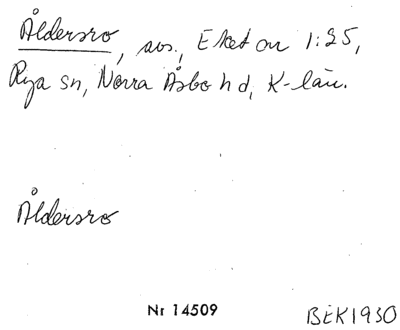 Åldersro, avs., Eket on 1:25,
Rya sn, Norra Åsbo hd, K-län.
Åldersro
Nr 14509 BEK1930